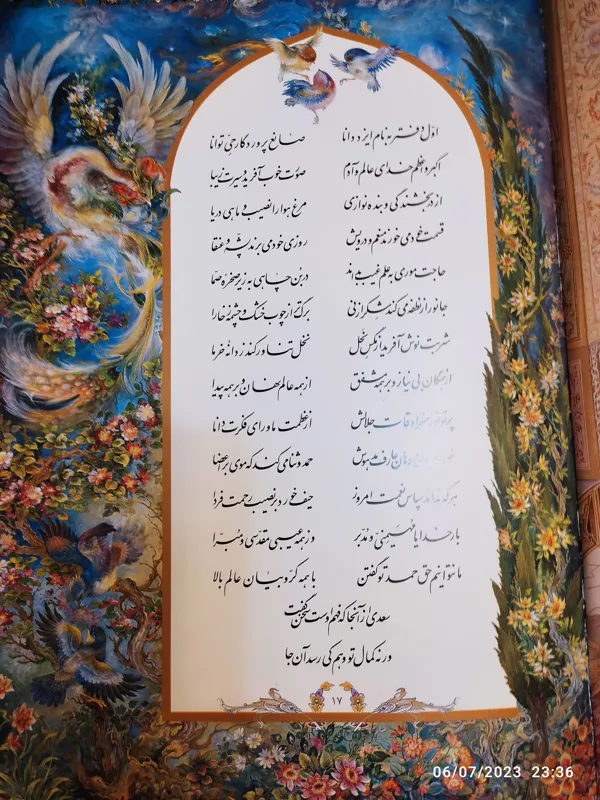 اول دفتر به نام ایزد دانا صانع پروردگار حیّ توانا
اکبر و اعظم خدای عالم و آدم صورت خوب آفرید و سیرت زیبا
از در بخشندگی و بنده نوازی مرغ هوا را نصیب و ماهی دریا
قسمت خود می خورند منعم و درویش روزی خود می برند پشّه و عنقا
حاجت موری به علم غیب بداند در بن چاهی به زیر صخره صمّا
جانور از نطفه می کند شکر از نی برگ تر از چوب خشک و چشمه ز خارا
شربت نوش آفرید از مگس نحل نخل تناور کند ز دانه خرما
از همگان بی نیاز و بر همه مشفق از همه عالم نهان و بر همه پیدا
پرتو نور سرادقات جلالش از عظمت ماورای فکرت دانا
دهان عارف مدهوش حمد و ثنا می کند که موی بر اعضا
هر که نداند سپاس نعمت امروز حیف خورد بر نصیب رحمت فردا
بارخدایا مهیمنی و مدبّر وز همه عیبی مقدّسی و مبرّا
ما نتوانیم حق حمد تو گفتن با همه کرّوبیان عالم بالا
سعدی از آنجا که فهم اوست سخن گفت
ورنه کمال تو وهم کی رسد آن جا
۱۷
06/07/2023 23:36